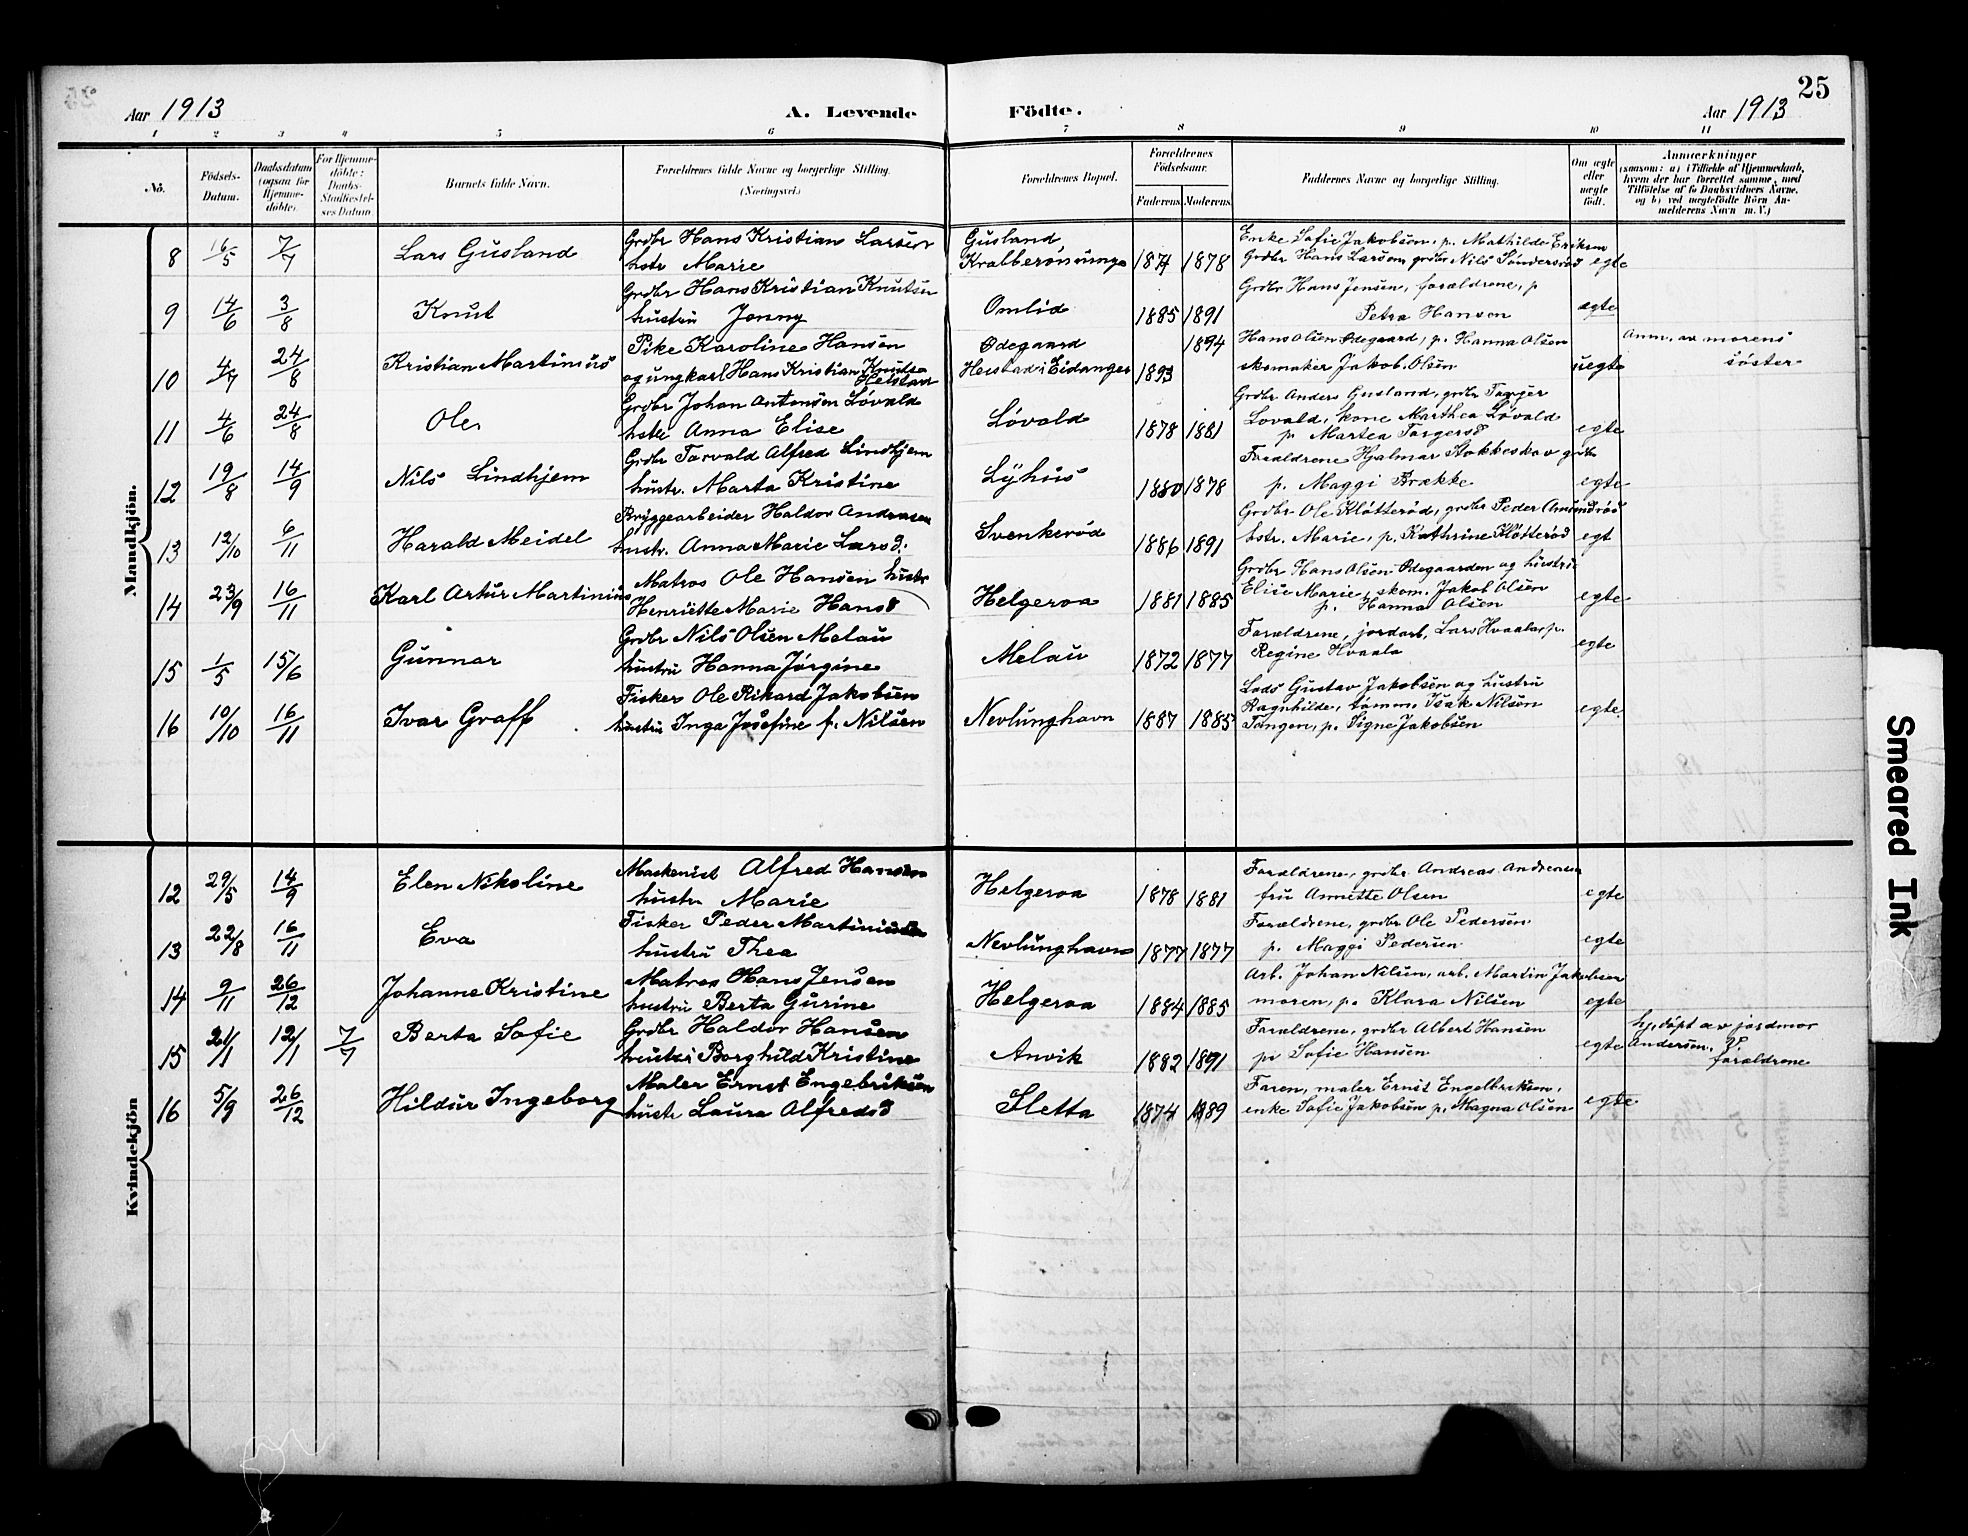 25
Aar 1913
A. Levende Födte.
Aar 1913
1 2 3 4 5 6 7 8 9 10 11
No.
Födsels-Datum.
Daabsdatum (ogsaa for Hjemmedöbte).
For Hjemmedöbte: Daabs-Stadfæstelses Datum.
Barnets fulde Navn.
Forældrenes fulde Navne og borgerlige Stilling. (Næringsvei.)
Forældrenes Bopæl.
Forældrenes Födselsaar.
Faderens Moderens
Faddernes Navne og borgerlige Stilling.
Om ægte eller uægte født.
Anmærkninger
(saasom: a) i Tilfælde af Hjemmedaab, hvem der har forrettet samme, med Tilföielse af to Daabsvidners Navne, og b) ved uægtefödte Börn Anmelderens Navn m. V.)
Mandkjön.
8 16/5 7/7 Lars Gusland Grdbr Hans Kristian Larsen
hstr Marie
Gusland
1874 1878 Enke Sofie Jakobsen, p. Mathilde Eriksen
Grdbr Hans Larsen, grdbr Nils Søndersrød egte
9 14/6 3/8 Knut Grdbr Hans Kristian Knutsen
hustru Jenny
Omlid 1885 1891 Grdbr Hans Jensen, forældrene, p
Petra Hansen ægte
10 4/7 24/8 Kristian Martinius Pike Karoline Hansen
og ungkarl Hans Kristian Knutsen
Heistad
Ødegaard 1894
Heistad i Eidanger 1893
Hans Olsen Ødegaard, p. Hanna Olsen
skomaker Jakob Olsen uegte
Anm. av morens
søster
11 4/6 24/8 Ole Grdbr Johan Antonsen Løvald
hstr Anna Elise
Løvald 1878 1881 Grdbr Anders Gusland, grdbr Torger
Lovald, kone Marthea Løvald
p Martea Torgersd egte
12 19/8 14/9 Nils Lindhjem Grdbr Torvald Alfred Lindhjem
hustr. Marta Kristine
Lyhus 1880 1878 Forældrene Hjalmar Stokkeskov grdbr
p. Maggi Brække egte
13 12/10 6/11 Harald Meidel Bryggearbeider Haldor Andresen
hustr. Anna Marie Larsd.
Svenkerød 1886 1891 Grdbr Ole Kløtterød, grdbr Peder Amundrød
hstr. Marie, p. Kathrine Kløtterød egt
14 23/9 16/11 Karl Artur Martinius Matros Ole Hansen hustr
Henriette Marie Hansd
Helgeroa 1881 1885 Grdbr Hans Olsen Ødegaarden og hustru
Elise Marie, skom. Jakob Olsen
p. Hanna Olsen egte
15 1/5 15/6 Gunnar Grdbr Nils Olsen Melau
hustru Hanna Jørgine
Melau 1872 1877 Forældrene, jordarb. Lars Hvaala, p.
Regine Hvaala egte
16 10/10 16/11 Ivar Graff Fisker Ole Rikard Jakobsen
hustru Inga Josefine f. Nilsen
Nevlunghavn 1887 1885 Lods Gustav Jakobsen og hustru
Ragnhilde, tømm. Isak Nilsen
Tangen, p. Signe Jakobsen egte
Kvindekjön
12 29/5 14/9 Elen Nikoline Maskenist Alfred Hansen
hustr. Marie
Helgeroa 1878 1881 Forældrene, grdbr Andreas Andreasen
fru Annette Olsen egte
13 22/8 16/11 Eva Fisker Peder Martinius
hustru Thea
Nevlunghavn 1877 1877 Forældrene, grdbr Ole Pedersen
p. Maggi Pedersen egte
14 9/11 26/12 Johanne Kristine Matros Hans Jensen
hustru Berta Gurine
Helgeroa 1884 1885 Arb. Johan Nilsen, arb. Martin Jakobsen
moren, p. Klara Nilsen egte
15 21/1 12/1 7/7 Berta Sofie Grdbr Haldor Hansen
hustru Borghild Kristine
Anvik 1882 1891 Forældrene, grdbr Albert Hansen
pi Sofie Hansen egte
hj. døpt av jordmor
Andersen,
forældrene
16 5/9 26/12 Hildur Ingeborg Maler Ernst Engebriksen
hustr Laura Alfredsd
Sletta 1874 1889 Faren, maler Ernst Engelbriksen,
enke Sofie Jakobsen p. Magna Olsen egte
Smeared Ink